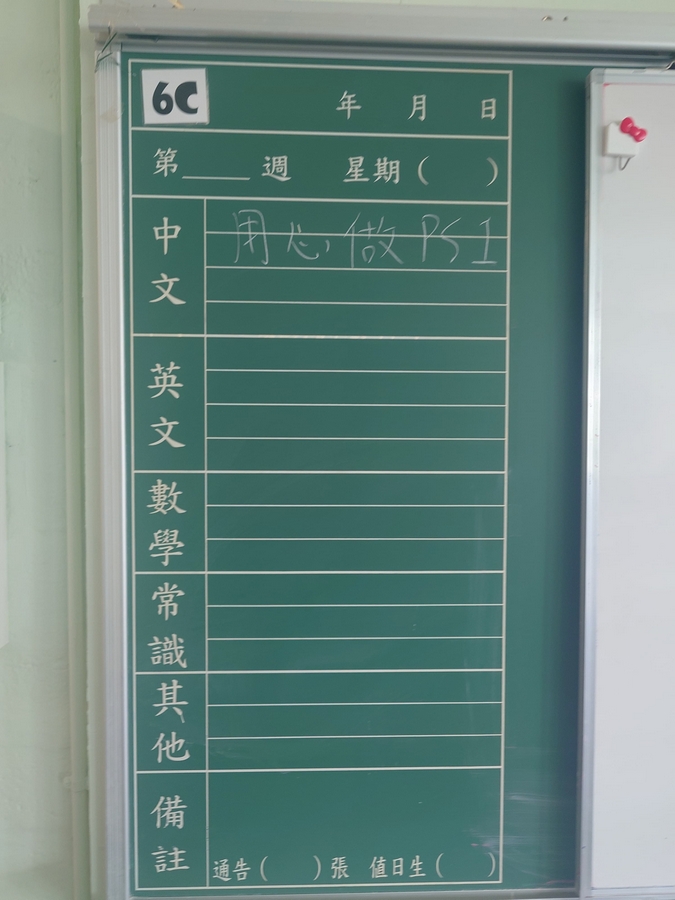 6C
年 月 日
第____週 星期( )
中文
用心做PS1
英文
數學
常識
其他
備註
通告( )張 值日生( )